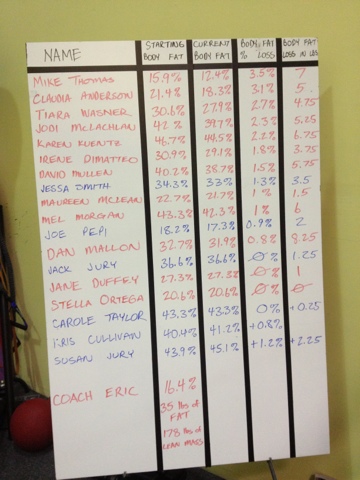 NAME STARTING BODY FAT CURRENT BODY FAT BODY FAT % LOSS BODY FAT LOSS IN LBS
MIKE THOMAS 15.9% 12.4% 3.5% 7
CLAUDIA ANDERSON 21.4% 18.3% 3.1% 5.
TIARA WASNER 30.6% 27.9% 2.7% 4.75
JODI McLACHLAN 42% 39.7% 2.3% 5.25
KAREN KUENTZ 46.7% 44.5% 2.2% 6.75
IRENE DIMATTEO 30.9% 29.1% 1.8% 3.75
DAVID MULLEN 40.2% 38.7% 1.5% 5.75
JESSA SMITH 34.3% 33% 1.3% 3.5
MAUREEN MCLEAN 22.7% 21.7% 1% 1.5
MEL MORGAN 43.3% 42.3% 1% 6
JOE PEPI 18.2% 17.3% 0.9% 2
DAN MALLON 32.7% 31.9% 0.8% 8.25
JACK JURY 36.6% 36.6% Ø% 1.25
JANE DUFFEY 27.3% 27.3% Ø% 1
STELLA ORTEGA 20.6% 20.6% Ø% Ø
CAROLE TAYLOR 43.3% 43.3% 0% +0.25
KRIS CULLIVAN 40.4% 41.2% +0.8%
SUSAN JURY 43.9% 45.1% +1.2% +2.25
COACH ERIC 16.4%
35 lbs of
FAT
178 lbs of
LEAN MASS